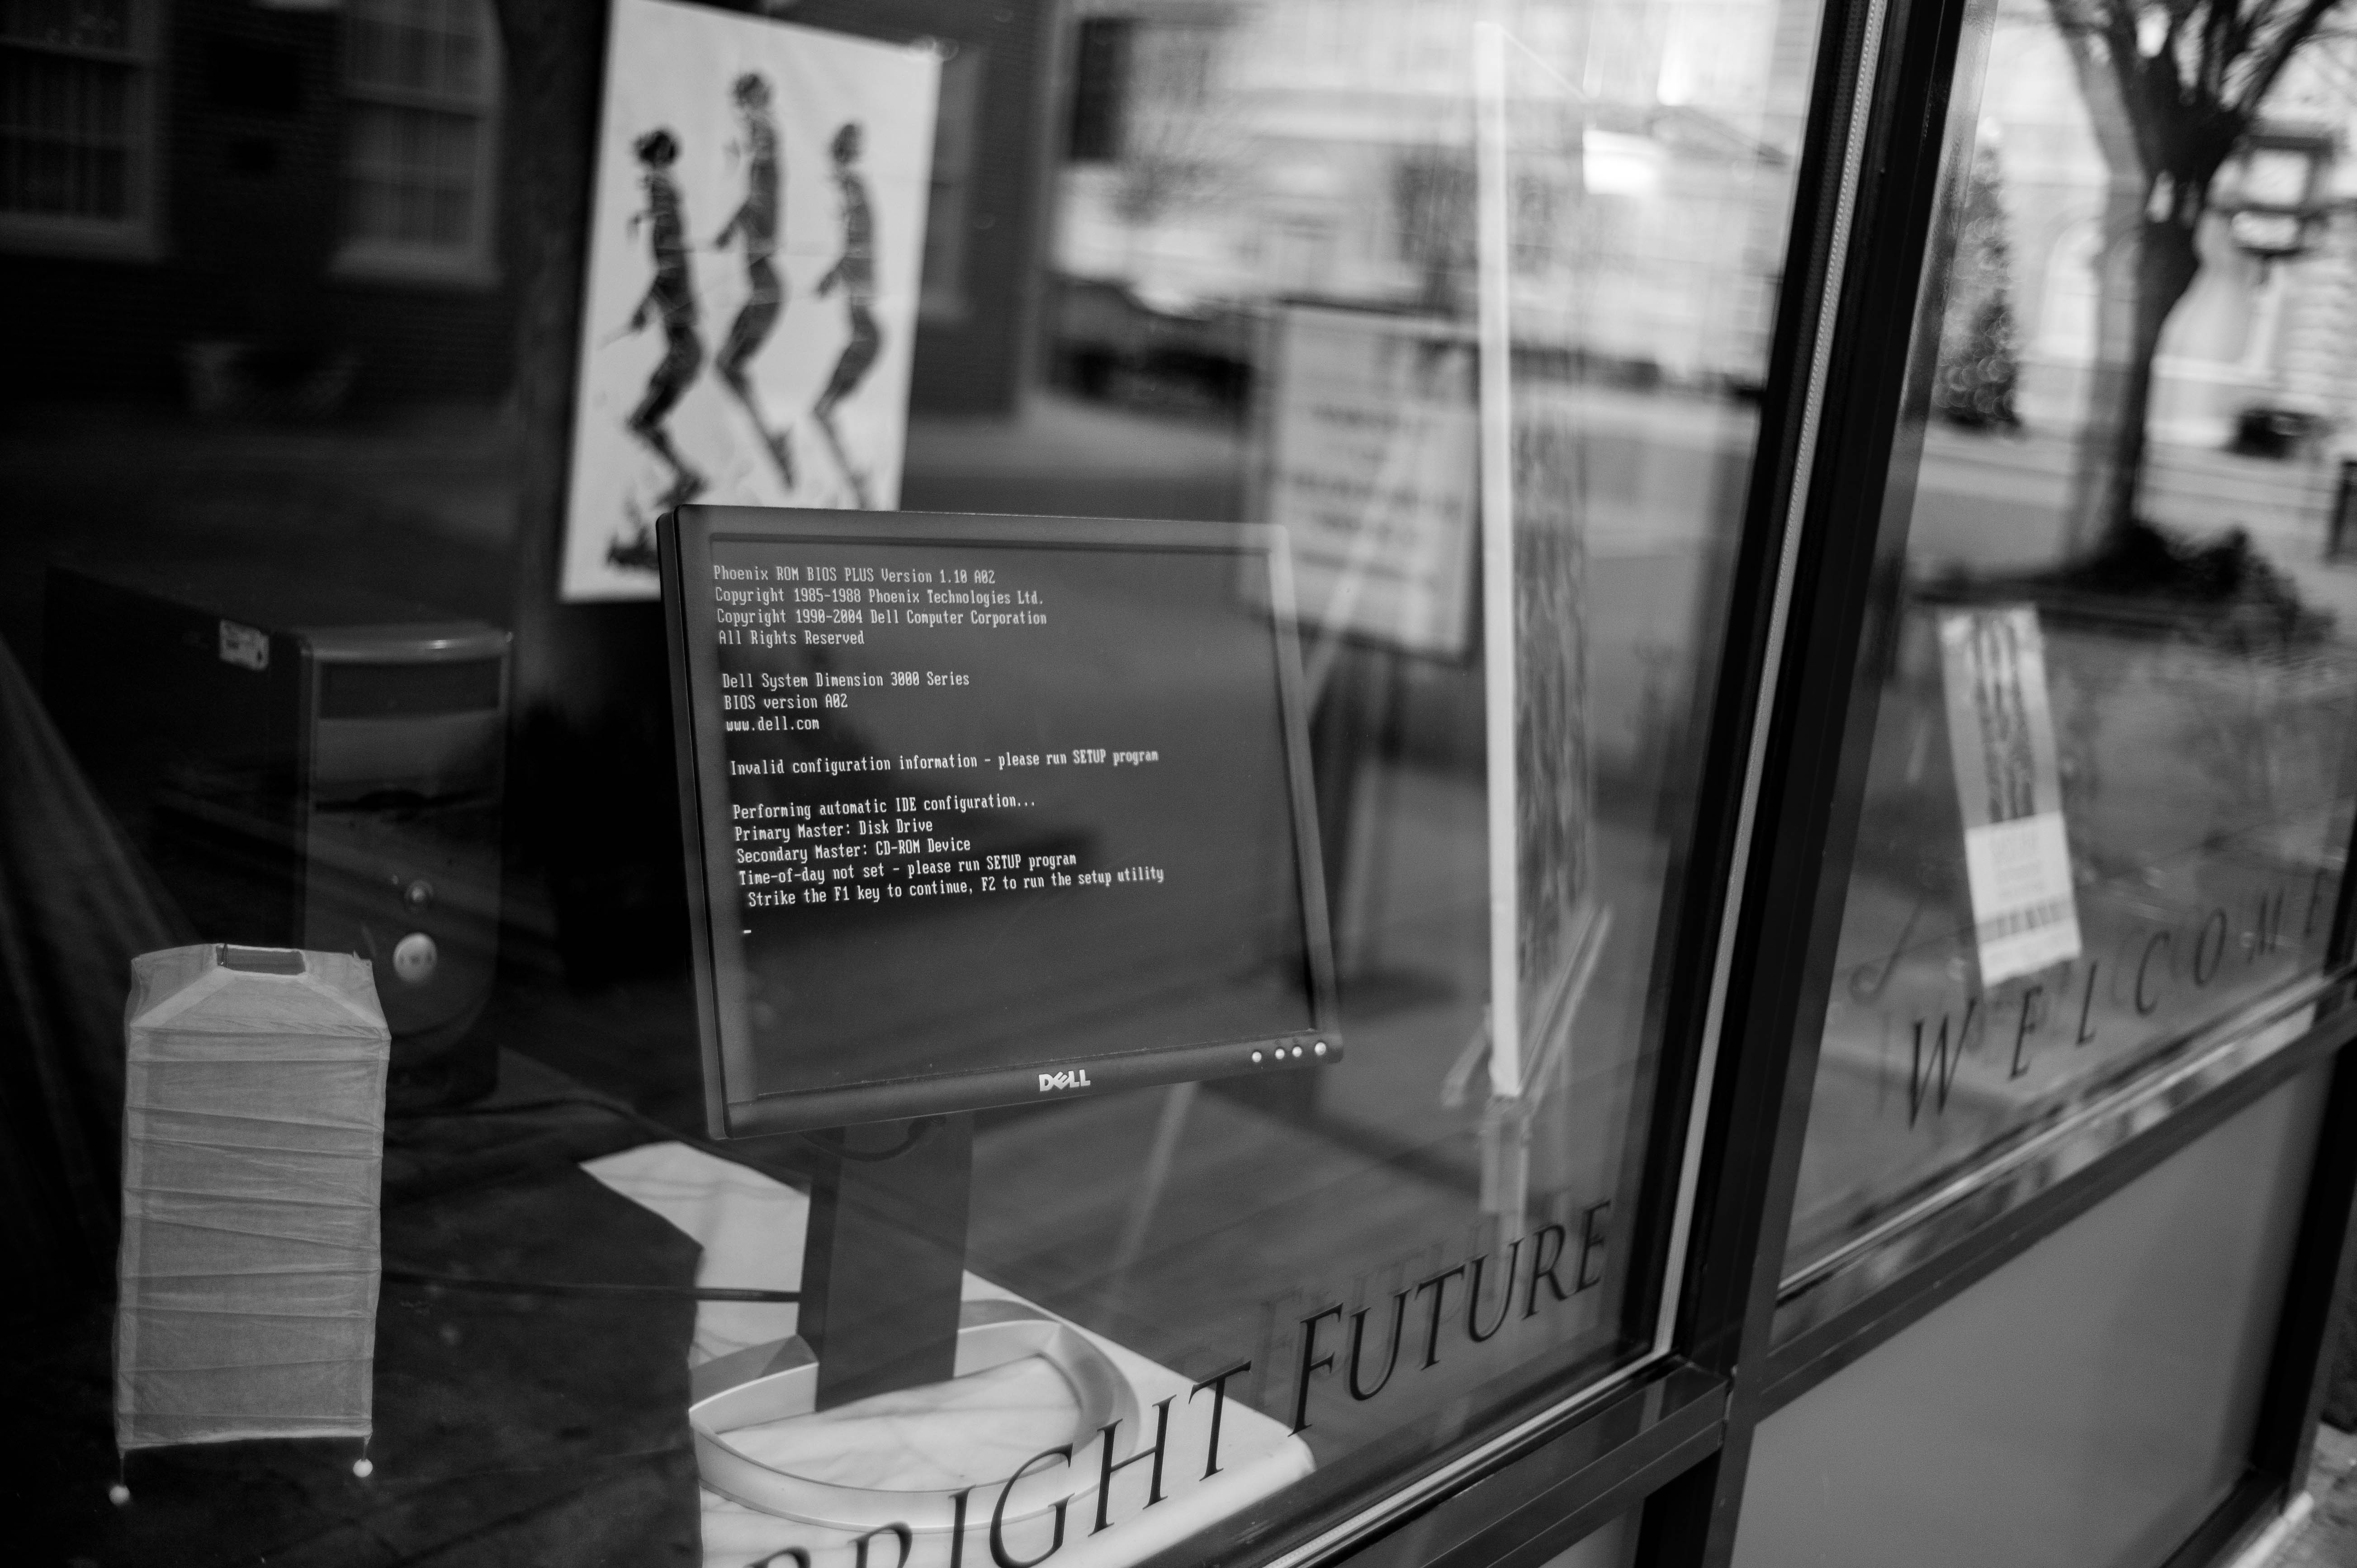 Phoenix ROM BIOS PLUS Version 1.10 A02
Copyright 1985-1988 Phoenix Technologies Ltd.
Copyright 1990-2004 Dell Computer Corporation
All Rights Reserved
Dell System Dimension 3000 Series
BIOS version A02
www.dell.com
Invalid configuration information - please run SETUP program
Performing automatic IDE configuration...
Primary Master: Disk Drive
Secondary Master: CD-ROM Device
Time-of-day not set - please run SETUP program
Strike the F1 key to continue, F2 to run the setup utility
DELL
WELCOME
BRIGHT FUTURE